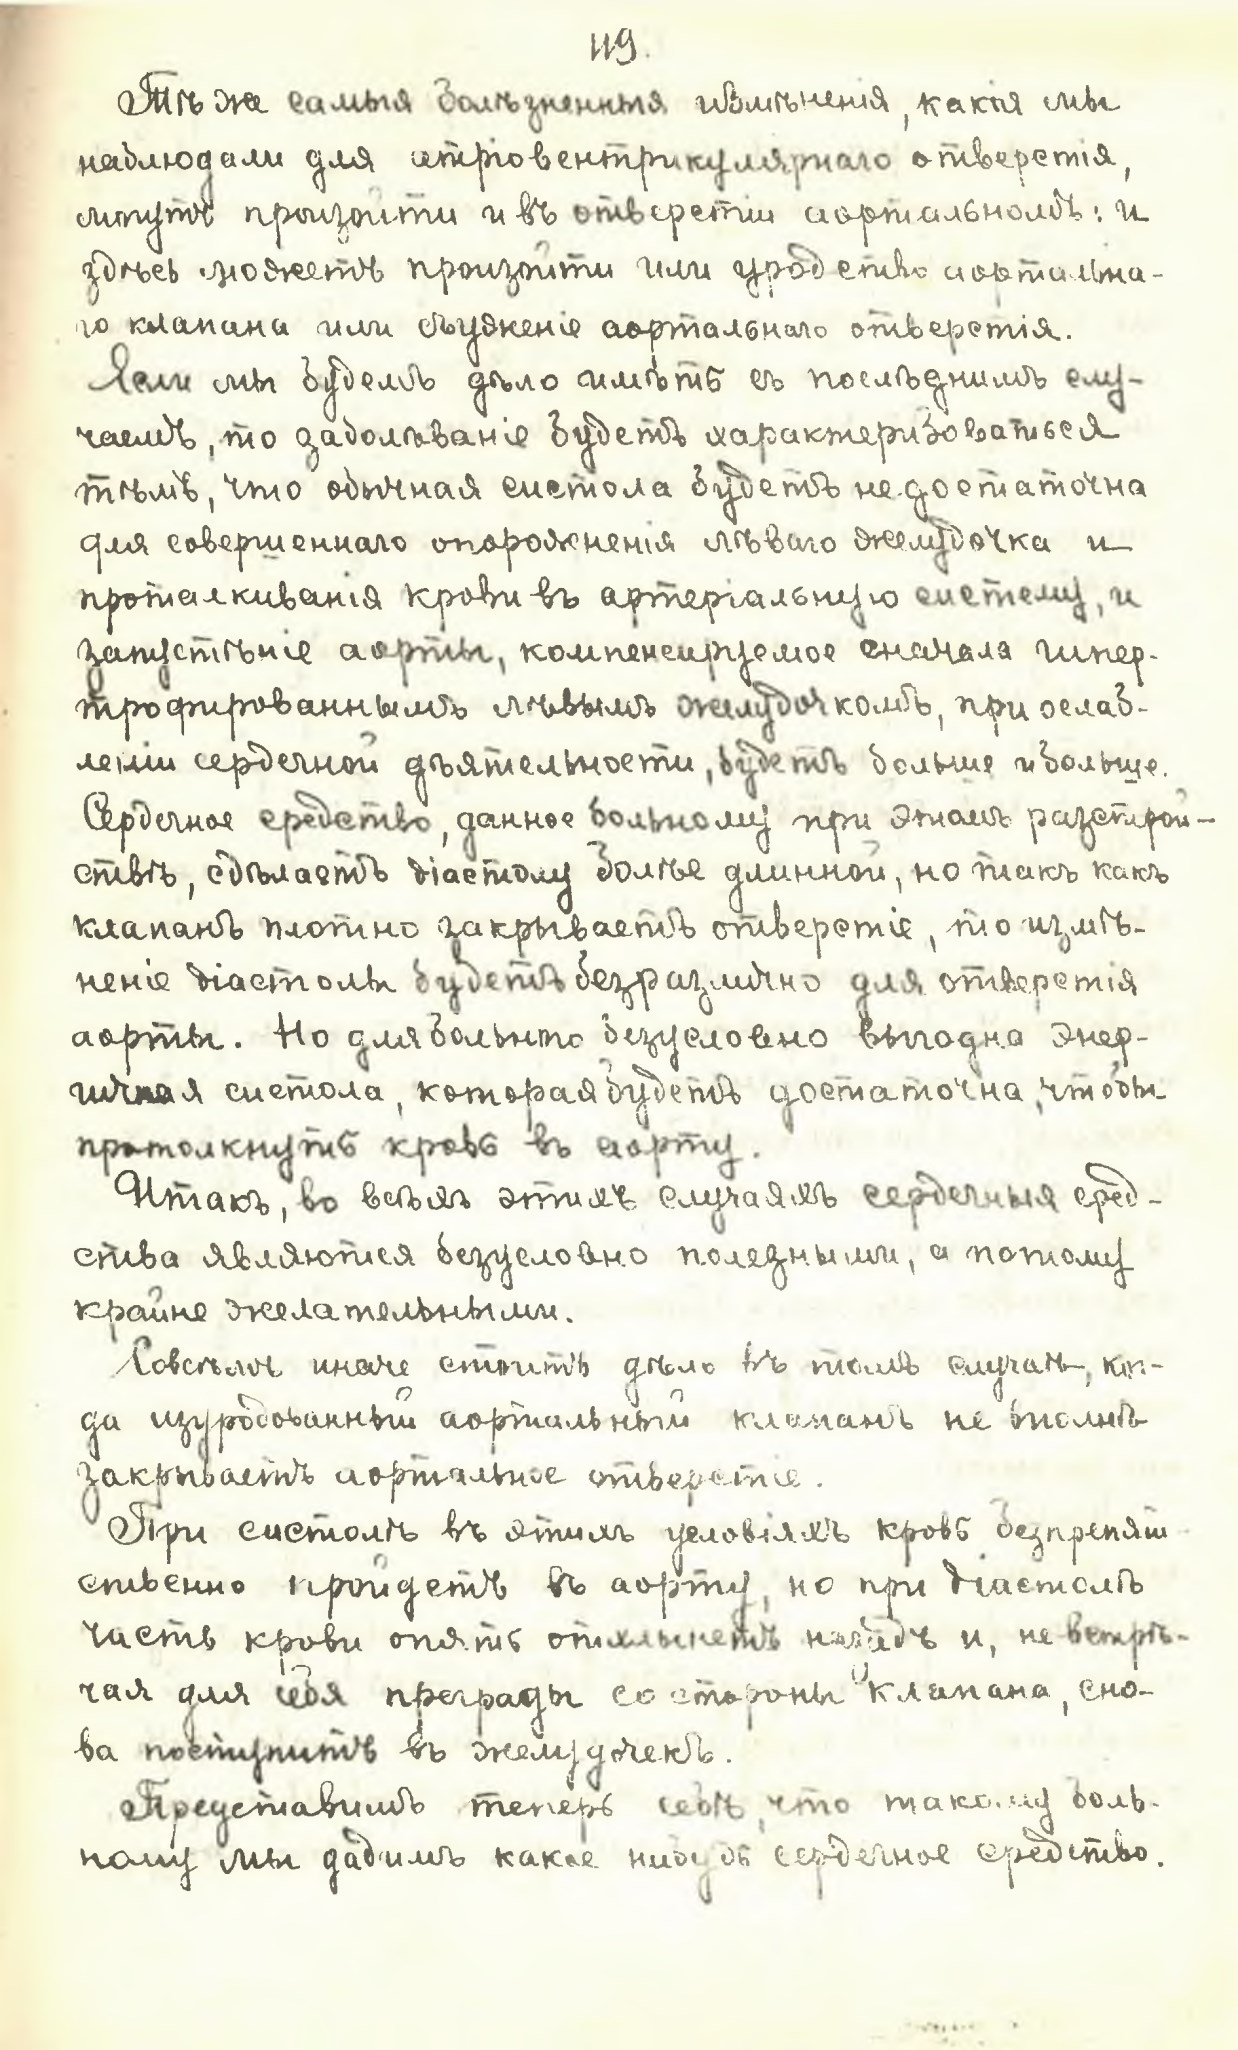 119.
Тѣ же самыя болѣзненныя измѣненія, какія мы
наблюдали для атріовентрикулярнаго отверстія,
могутъ произойти и въ отверстіи аортальномъ: и
здѣсь можетъ произойти или уродство аортальна-
го клапана или съуженіе аортальнаго отверстія.
Если мы будемъ дѣло имѣть съ послѣднимъ слу-
чаемъ, то заболѣваніе будетъ характеризоваться
тѣмъ, что обычная систола будетъ недостаточна
для совершеннаго опорожненія лѣваго желудочка и
проталкиванія крови въ артеріальную систему, и
запустѣніе аорты, компенсируемое сначала гипер-
трофированнымъ лѣвымъ желудочкомъ, при ослаб-
леніи сердечной дѣятельности, будетъ больше и больше.
Сердечное средство, данное больному при этомъ разстрой-
ствѣ, сдѣлаетъ діастолу болѣе длинной, но такъ какъ
клапанъ плотно закрываетъ отверстіе, то измѣ-
неніе діастолы будетъ безразлично для отверстія
аорты. Но для больного безусловно выгодна энер-
гичная систола, которая будетъ достаточна, чтобы
протолкнуть кровь въ аорту.
Итакъ, во всѣхъ этихъ случаяхъ сердечныя сред-
ства являются безусловно полезными, а потому
крайне желательными.
Совсѣмъ иначе стоитъ дѣло въ томъ случаѣ, ког-
да изуродованный аортальный клапанъ не вполнѣ
закрываетъ аортальное отверстіе.
При систолѣ въ этихъ условіяхъ кровь безпрепят
ственно пройдетъ въ аорту, но при діастолѣ
часть крови опять отхлынетъ назадъ и, не встрѣ-
чая для себя преграды со стороны клапана, сно-
ва поступитъ въ желудочекъ.
Представимъ теперь себѣ, что такому боль-
ному мы дадимъ какое нибудь сердечное средство.